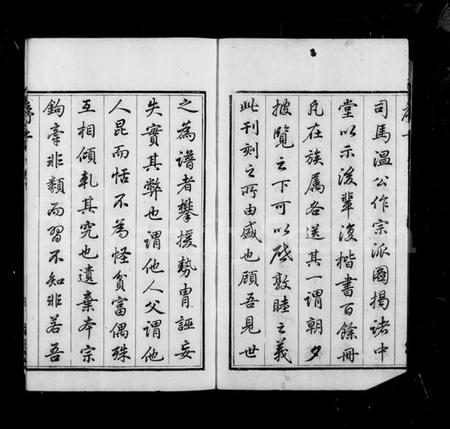 司馬溫公作宗派圖揭諸中
堂以示後輩復楷書百餘冊
凡在族屬各送其一謂朝夕
披覽之下可以啟敦睦之義
此刊刻之所由盛也顧吾見世
之為譜者攀援勢胄誣妄
失實其弊也謂他人父謂他
人昆而恬不為怪貧富偶殊
互相傾軋其究也遺棄本宗
鉤牽非類而習不知非若吾